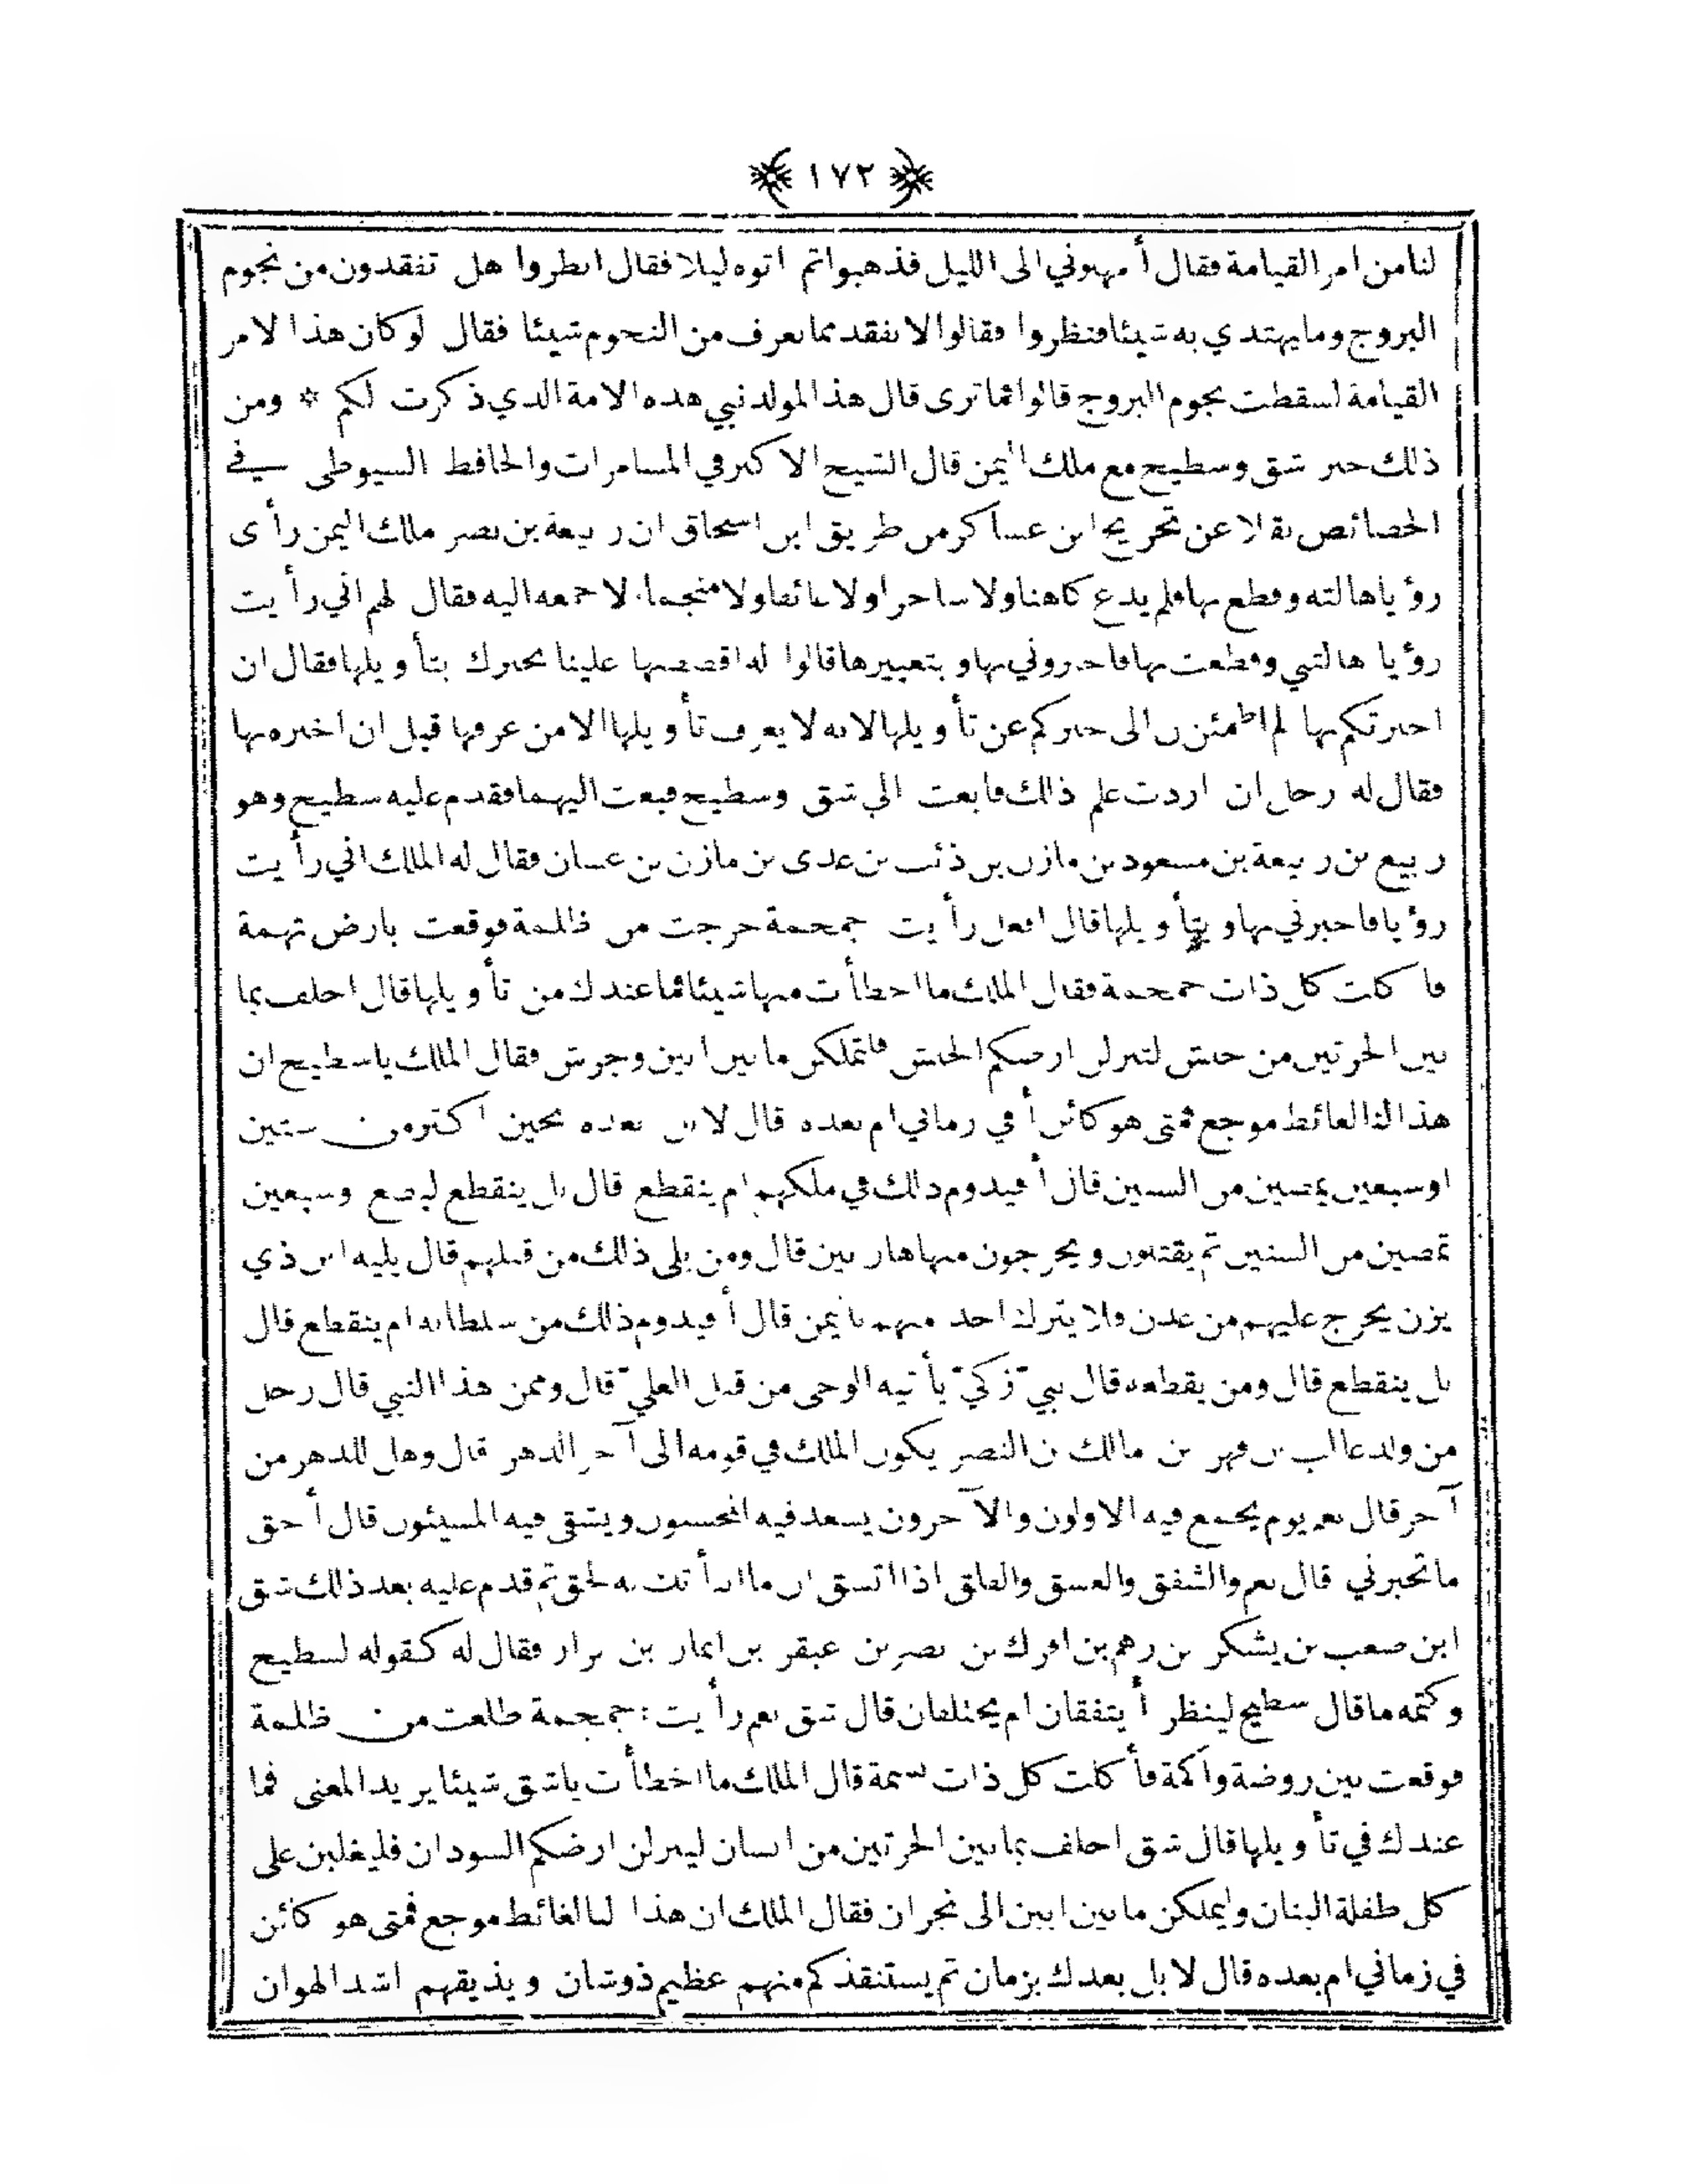 ﴿ ١٧٢ ﴾
لنا من امر القيامة فقال أمهلوني الى الليل فذهبوا ثم اتوه ليلا فقال انظروا هل تفقدون من نجوم
البروج وما يهتدي به شيئا فنظروا فقالوا لا نفقد مما نعرف من النجوم شيئا فقال لو كان هذا لامر
القيامة لسقطت نجوم البروج قالوا فما ترى قال هذا لمولد نبي هذه الامة الذي ذكرت لكم * ومن
ذلك خبر شق وسطيح مع ملك اليمن قال الشيخ الاكبر في المسامرات والحافظ السيوطي في
الخصائص نقلا عن تخريج ابن عساكر من طريق ابن اسحاق ان ربيعة بن نصر ملك اليمن رأى
رؤيا هالته وفظع بها فلم يدع كاهنا ولا ساحرا ولا عائفا ولا منجما الا جمعه اليه فقال لهم اني رأيت
رؤيا هالتني وفظعت بها فاخبروني بها وبتعبيرها قالوا له اقصصها علينا نخبرك بتأويلها فقال ان
اخبرتكم بها لم اطمئن الى خبركم عن تأويلها لانه لا يعرف تأويلها الا من عرفها قبل ان اخبره بها
فقال له رجل ان اردت علم ذلك فابعث الى شق وسطيح فبعث اليهما فقدم عليه سطيح وهو
ربيع بن ربيعة بن مسعود بن مازن بن ذئب بن عدى بن مازن بن غسان فقال له الملك اني رأيت
رؤيا فاخبرني بها وبتأويلها قال افعل رأيت جمجمة خرجت من ظلمة فوقعت بارض تهمة
فاكلت كل ذات جمجمة فقال الملك ما اخطأت منها شيئا فما عندك من تأويلها قال احلف بما
بين الحرتين من حنش لتنزلن ارضكم الحبش فلتملكن ما بين ابين وجرش فقال الملك يا سطيح ان
هذا لنا لغائظ موجع فمتى هو كائن أفي زماني ام بعده قال لا بل بعده بحين اكثر من ستين
او سبعين يمضين من السنين قال أفيدوم ذلك في ملكهم ام ينقطع قال بل ينقطع لبضع وسبعين
تمضين من السنين ثم يقتلون ويخرجون منها هاربين قال ومن يلى ذلك من قتلهم قال يليه ابن ذي
يزن يخرج عليهم من عدن ولا يترك احد منهم باليمن قال أفيدوم ذلك من سلطانه ام ينقطع قال
بل ينقطع قال ومن يقطعه قال نبيّ زكيّ يأتيه الوحى من قبل العليّ قال وممن هذا النبي قال رجل
من ولد غالب بن فهر بن مالك بن النضر يكون الملك في قومه الى آخر الدهر قال وهل للدهر من
آخر قال نعم يوم يجمع فيه الاولون والآخرون يسعد فيه المحسنون ويشقى فيه المسيئون قال أحق
ما تخبرني قال نعم والشفق والغسق والفلق اذا اتسق ان ما انبأتك به لحق ثم قدم عليه بعد ذلك شق
ابن صعب بن يشكر بن رهم بن افرك بن نصر بن عبقر بن انمار بن نزار فقال له كقوله لسطيح
وكتمه ما قال سطيح لينظر أيتفقان ام يختلفان قال شق نعم رأيت جمجمة طلعت من ظلمة
فوقعت بين روضة وأكمة فأكلت كل ذات نسمة قال الملك ما اخطأت يا شق شيئا يريد المعنى فما
عندك في تأويلها قال شق احلف بما بين الحرتين من انسان لينزلن ارضكم السودان فليغلبن على
كل طفلة البنان وليملكن ما بين ابين الى نجران فقال الملك ان هذا لنا لغائظ موجع فمتى هو كائن
في زماني ام بعده قال لا بل بعدك بزمان ثم يستنقذكم منهم عظيم ذو شان ويذيقهم اشد الهوان